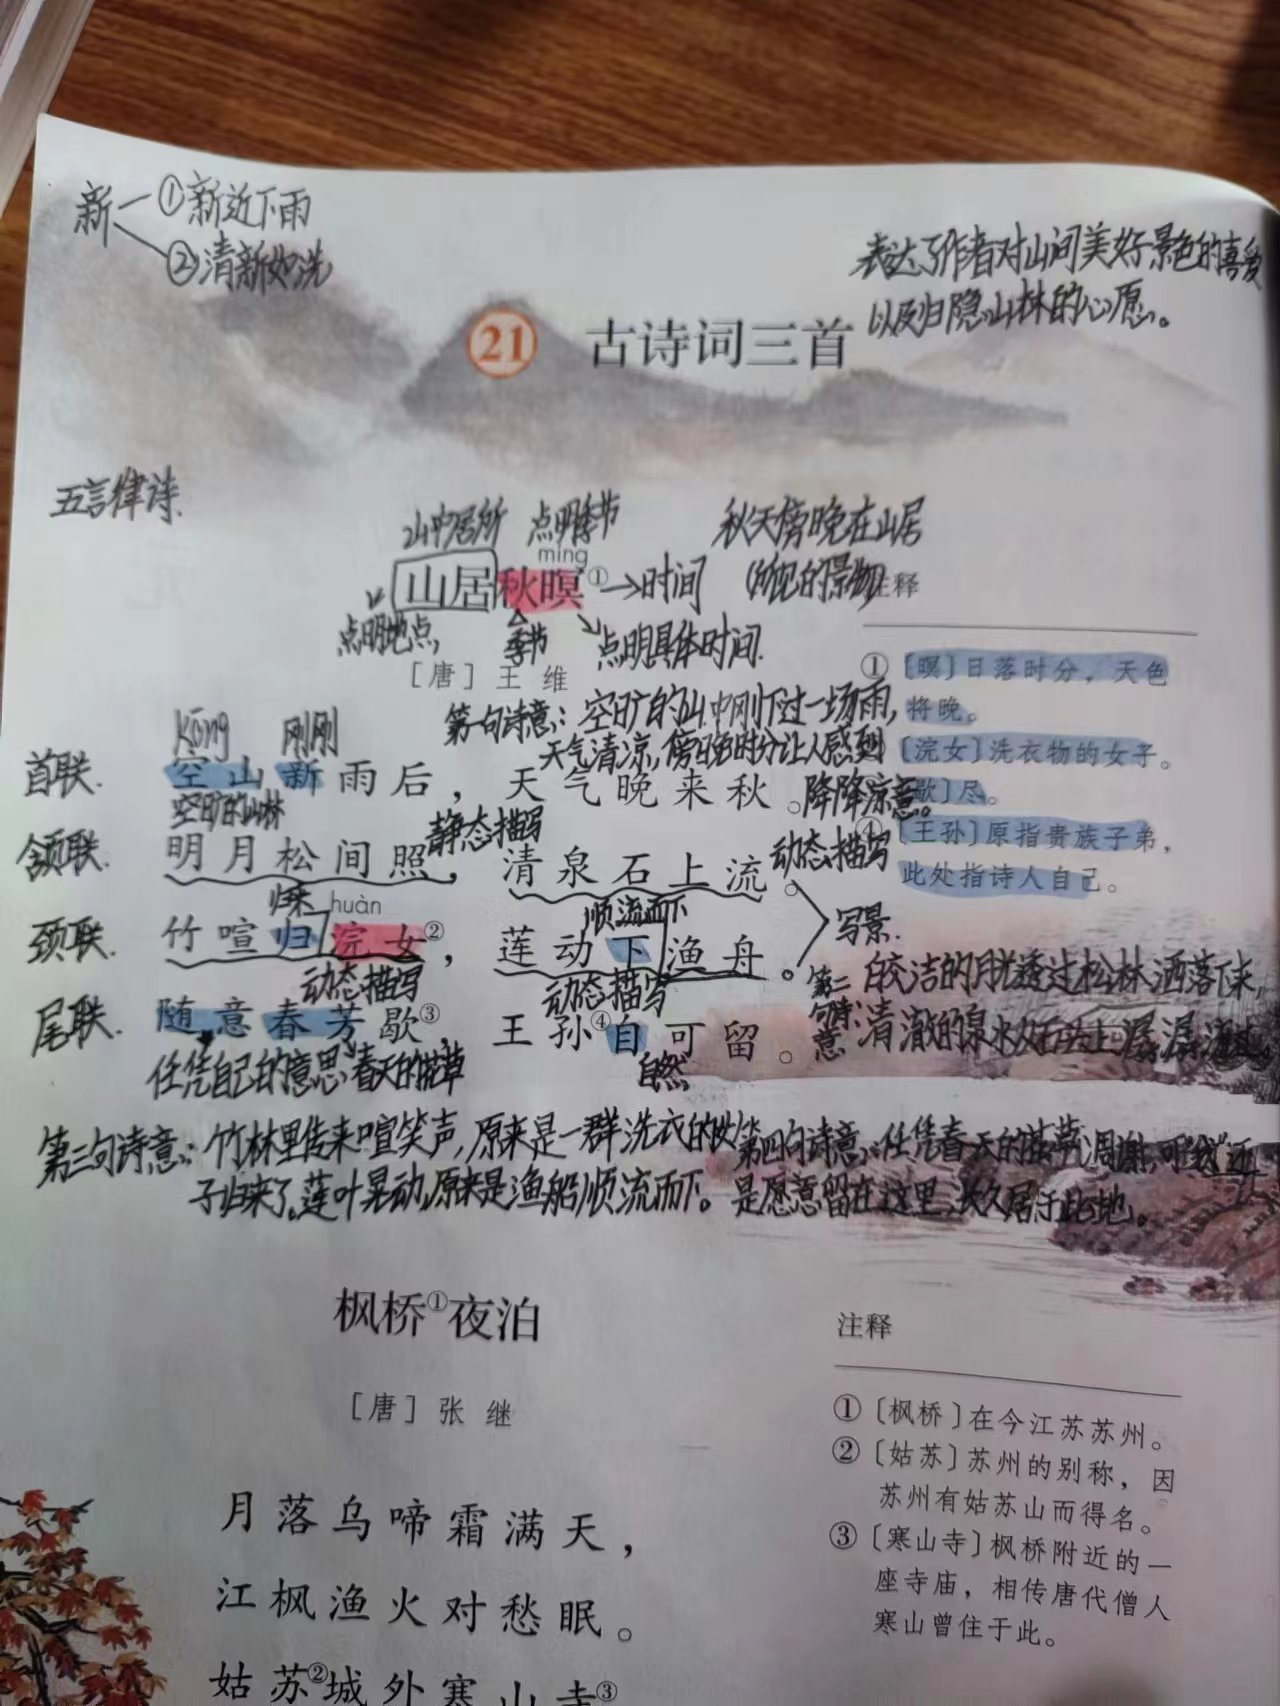 新
①新近下雨
②清新如洗
表达了作者对山间美好景色的喜爱
以及归隐山林的心愿。
21 古诗词三首
五言律诗.
山中居所 点明季节 秋天傍晚在山居
míng
山居秋暝① →时间 (所见的景物)
注释
点明地点, 季节 点明具体时间.
[唐] 王维
①〔暝〕日落时分，天色
将晚。
〔浣女〕洗衣物的女子。
歇〕尽。
④〔王孙〕原指贵族子弟，
此处指诗人自己。
第一句诗意：空旷的山中刚下过一场雨,
天气清凉,傍晚时分让人感到
降降凉意。
kōng 刚刚
首联. 空山新雨后，天气晚来秋。
空旷的山林 静态描写 动态描写
颔联. 明月松间照，清泉石上流。
归来 huàn 顺流而下
颈联. 竹喧归浣女②，莲动下渔舟。
写景.
动态描写 动态描写
尾联. 随意春芳歇③，王孙④自可留。
任凭自己的意思 春天的花草 自然
第二句诗意 皎洁的月光透过松林洒落下来,
清澈的泉水在石头上潺潺流过。
第三句诗意：竹林里传来喧笑声,原来是一群洗衣的女
子归来了。莲叶晃动,原来是渔船顺流而下。
第四句诗意：任凭春天的花草凋谢,可“我”还
是愿意留在这里,长久居于此地。
枫桥①夜泊
[唐] 张继
月落乌啼霜满天，
江枫渔火对愁眠。
姑苏②城外寒山寺③
注释
①〔枫桥〕在今江苏苏州。
②〔姑苏〕苏州的别称，因
苏州有姑苏山而得名。
③〔寒山寺〕枫桥附近的一
座寺庙，相传唐代僧人
寒山曾住于此。